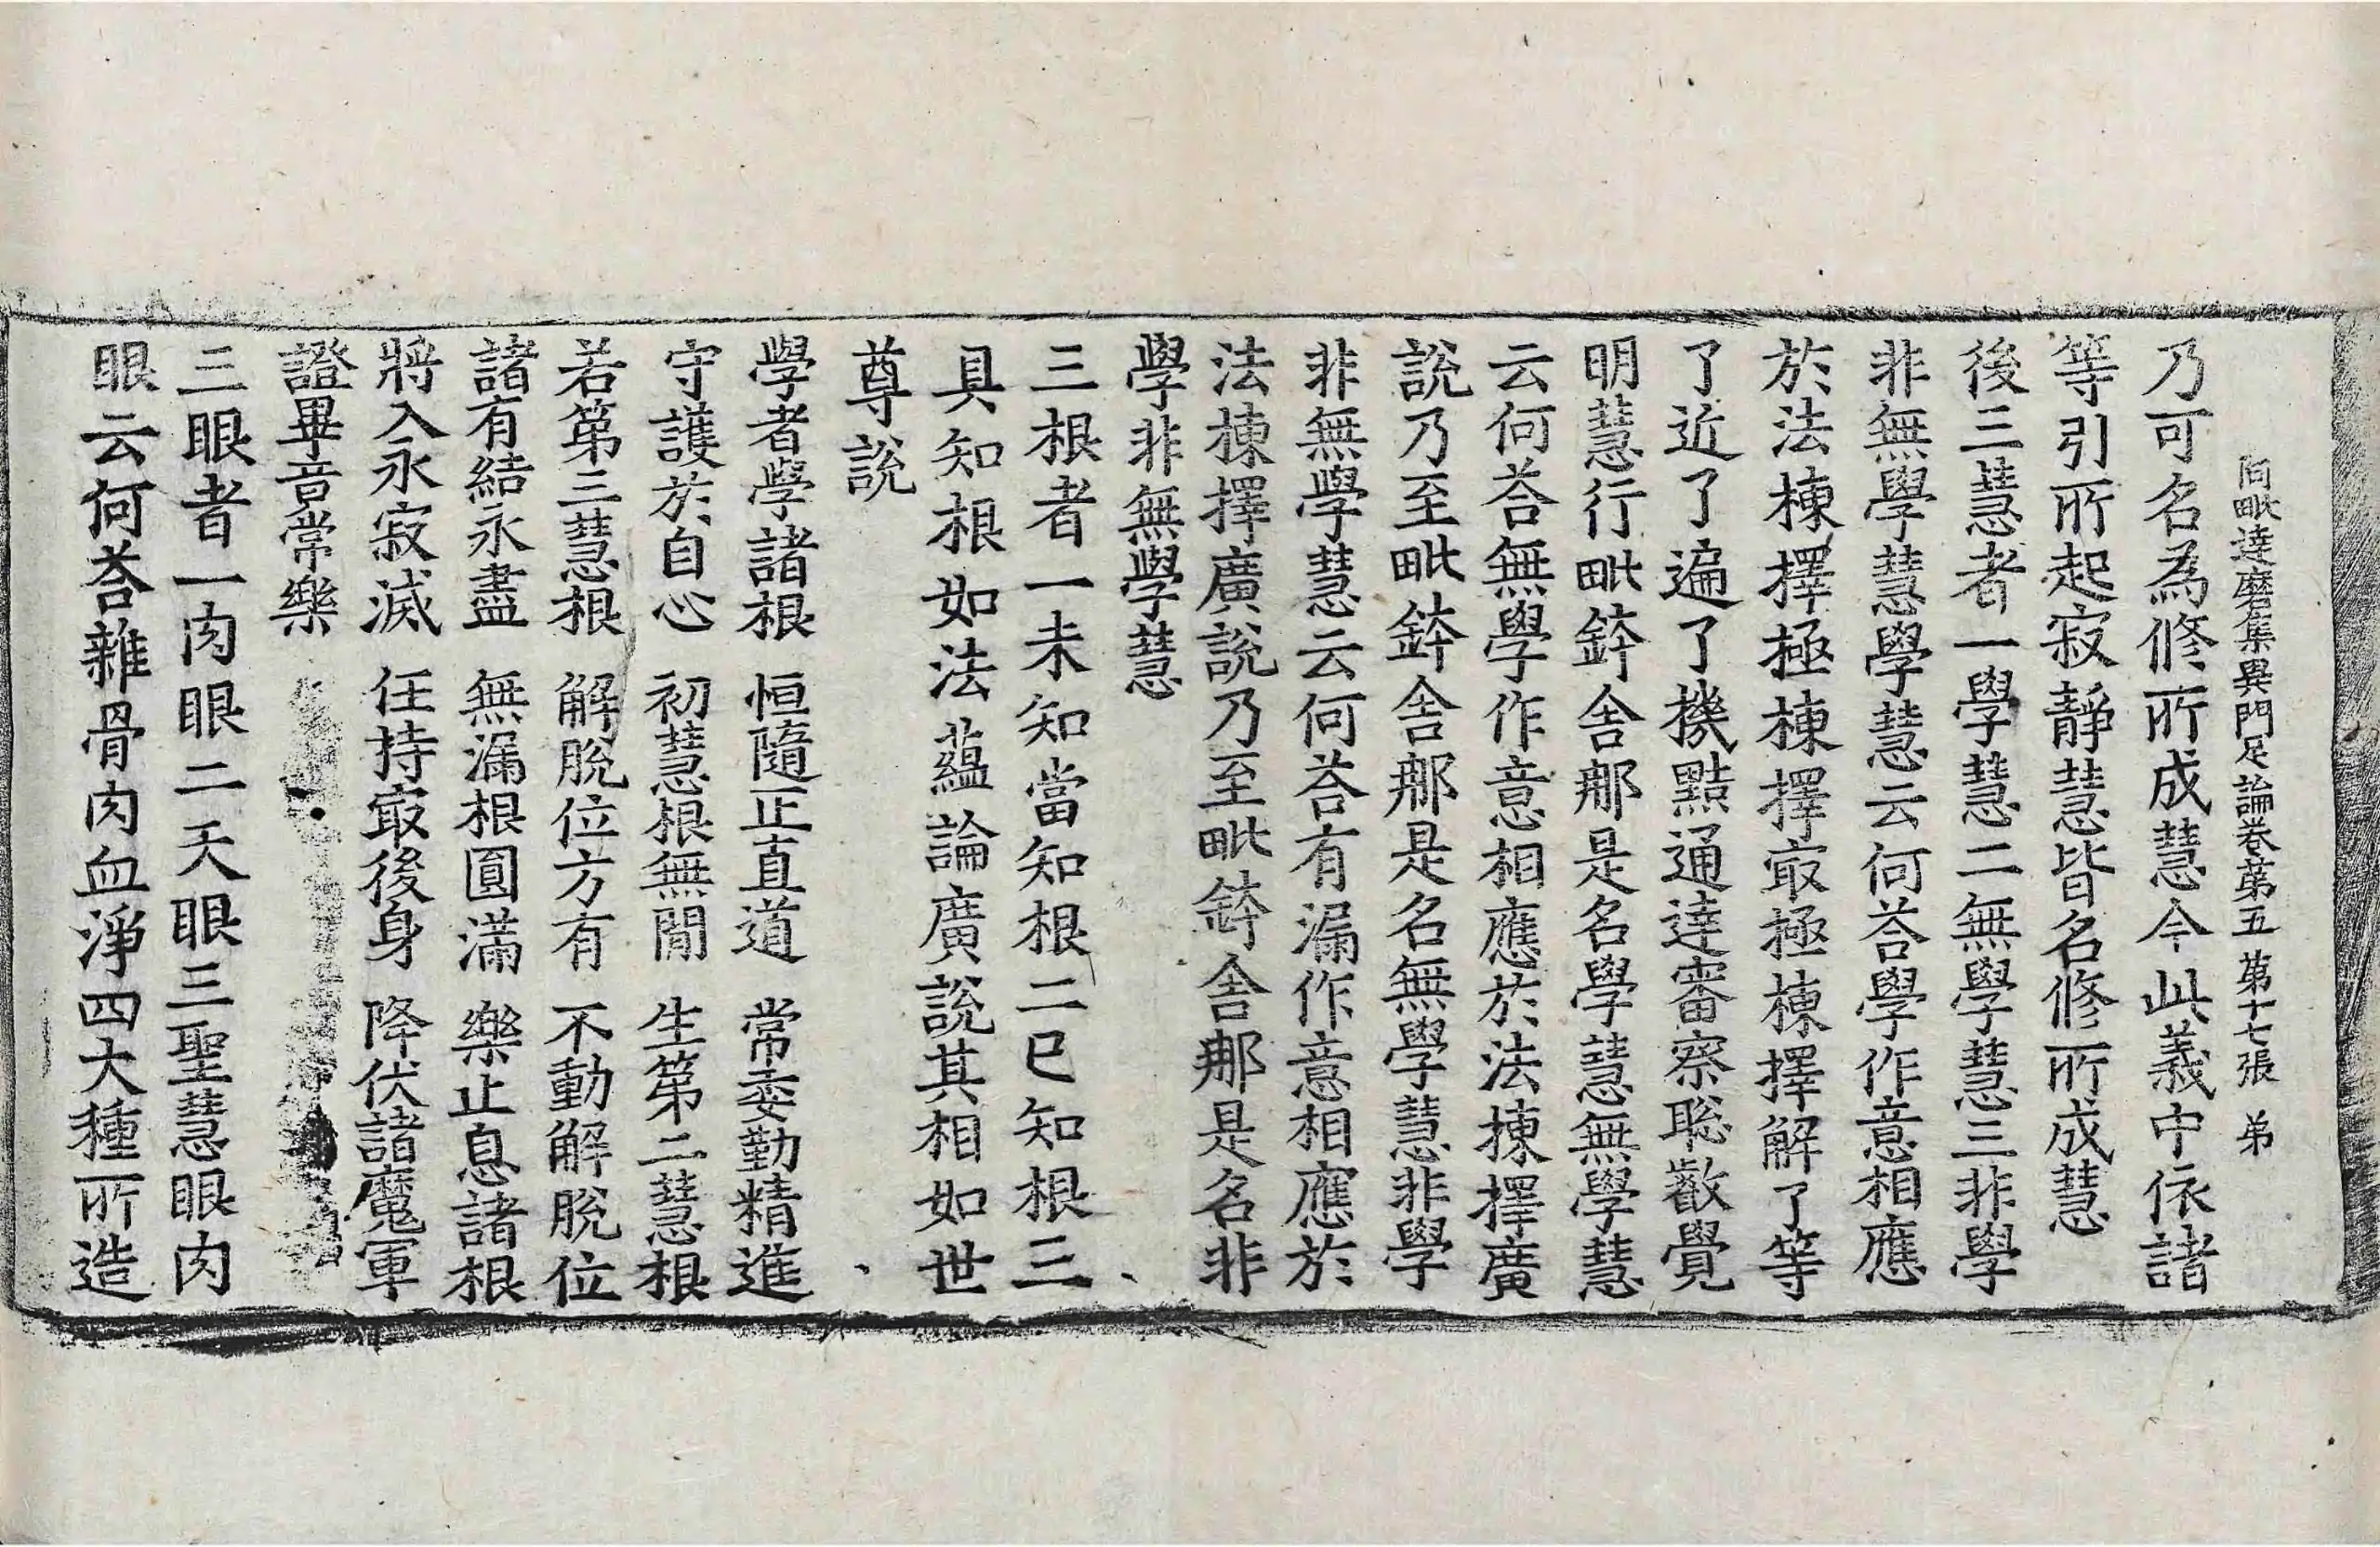 阿毗達磨集異門足論卷第五 第十七張 弟
乃可名為修所成慧今此義中依諸
等引所起寂靜慧皆名修所成慧
後三慧者一學慧二無學慧三非學
非無學慧學慧云何荅學作意相應
於法揀擇極揀擇㝡極揀擇解了等
了近了遍了機黠通達審察聡叡覺
明慧行毗鉢舍那是名學慧無學慧
云何荅無學作意相應於法揀擇廣
說乃至毗鉢舍那是名無學慧非學
非無學慧云何荅有漏作意相應於
法揀擇廣說乃至毗鉢舍那是名非
學非無學慧
三根者一未知當知根二已知根三
具知根如法蘊論廣說其相如世
尊說
學者學諸根 恒隨正直道 常委勤精進
守護於自心 初慧根無閒 生第二慧根
若第三慧根 解脫位方有 不動解脫位
諸有結永盡 無漏根圓滿 樂止息諸根
將入永寂滅 任持㝡後身 降伏諸魔軍
證畢竟常樂
三眼者一肉眼二天眼三聖慧眼肉
眼云何荅雜骨肉血淨四大種所造